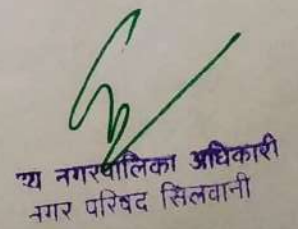 ख्य नगरपालिका अधिकारी
नगर परिषद सिलवानी